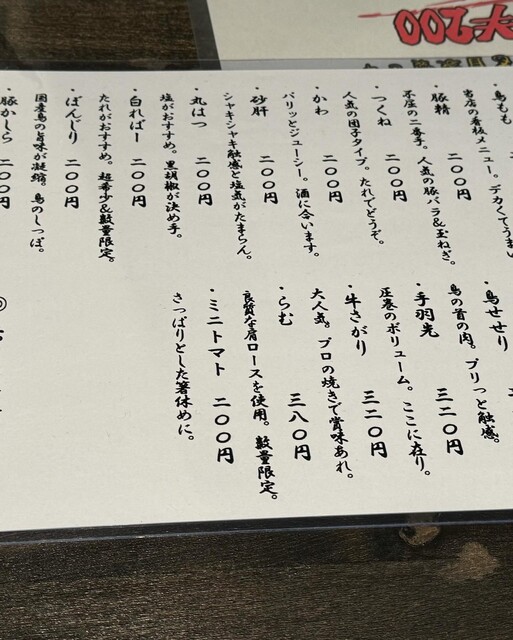 ・鳥もも
当店の看板メニュー。デカくてうまい
・豚精 二〇〇円
不屈の二番手。人気の豚バラ&玉ねぎ。
・つくね 二〇〇円
人気の団子タイプ。たれでどうぞ。
・かわ 二〇〇円
パリッとジューシー。酒に合います。
・砂肝 二〇〇円
シャキシャキ触感と塩気がたまらん。
・丸はつ 二〇〇円
塩がおすすめ。黒胡椒が決め手。
・白ればー 二〇〇円
たれがおすすめ。超希少&数量限定。
・ぼんじり 二〇〇円
国産鳥の旨味が凝縮。鳥のしっぽ。
豚かしら 二〇〇円
・鳥せせり
鳥の首の肉。プリっと触感。
・手羽先 三二〇円
圧巻のボリューム。ここに在り。
・牛さがり 三二〇円
大人気。プロの焼きで賞味あれ。
・らむ 三八〇円
良質な肩ロースを使用。数量限定。
・ミニトマト 二〇〇円
さっぱりとした箸休めに。